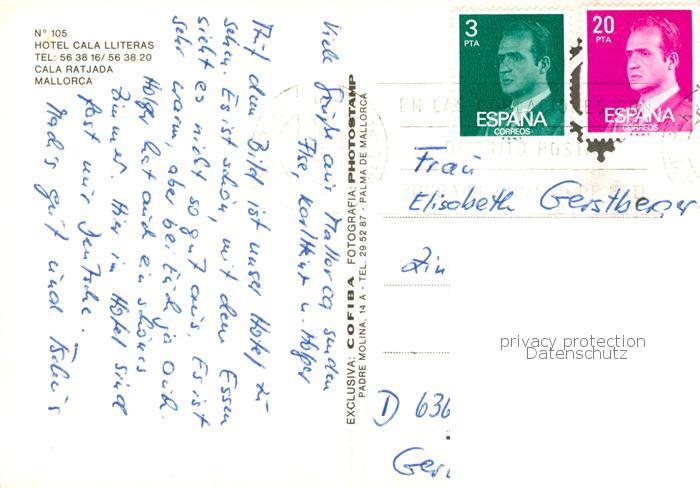 N° 105
HOTEL CALA LLITERAS
TEL: 56 38 16/ 56 38 20
CALA RATJADA
MALLORCA
Viele Grüße aus Mallorca senden
Ilse Karlheinz u. Holger
Auf dem Bild ist unser Hotel zu
sehen. Es ist schön, mit dem Essen
sieht es nicht so gut aus. Es ist
sehr warm, aber bei Euch ja auch.
Holger hat auch ein schönes
Zimmer. Hier in Hotel sind
fast nur Deutsche.
Mach's gut und Tschüs
EXCLUSIVA: COFIBA FOTOGRAFIA: PHOTOSTAMP
PADRE MOLINA, 14 A - TEL. 29 52 87 - PALMA DE MALLORCA
3
PTA
ESPAÑA
CORREOS
F.N.M.T.
20
PTA
ESPAÑA
CORREOS
F.N.M.T.
Frau
Elisabeth Gerstberger
D 636
privacy protection
Datenschutz